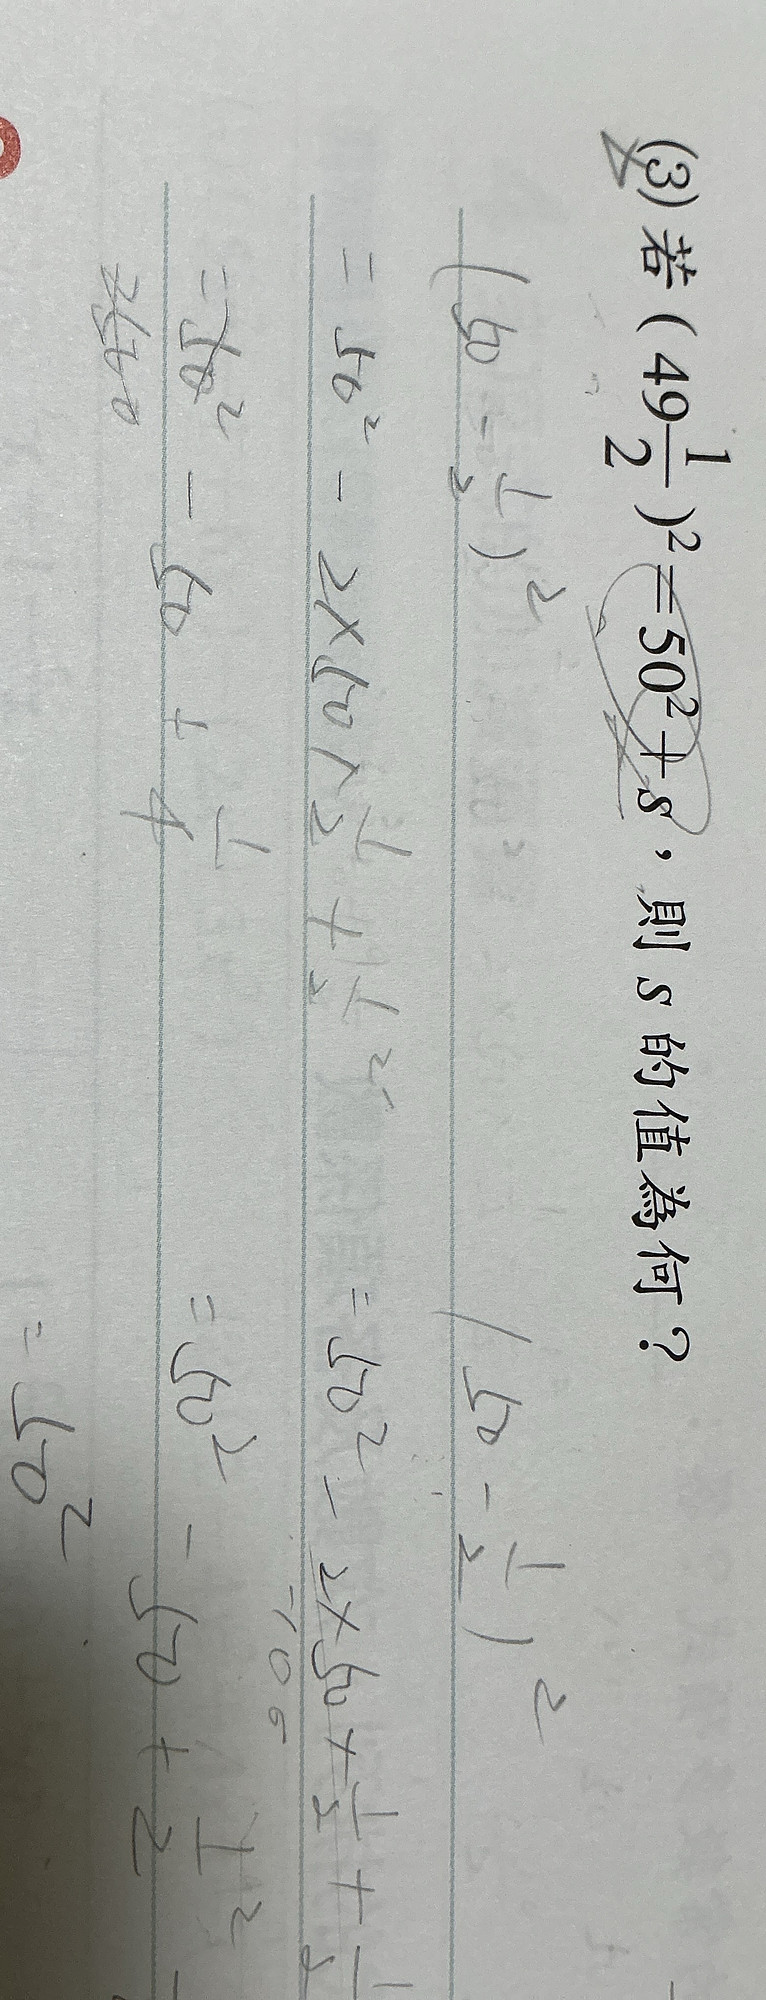 (3) 若 ( 49 1/2 )² = 50² + s，則 s 的值為何？
( 50 - 1/2 )²
= 50² - 2 × 50 × 1/2 + 1/2²
= 50² - 50 + 1/4
( 50 - 1/2 )²
= 50² - 2 × 50 × 1/2 + 1/2
= 50² - 50 + 1/2²
= 50²